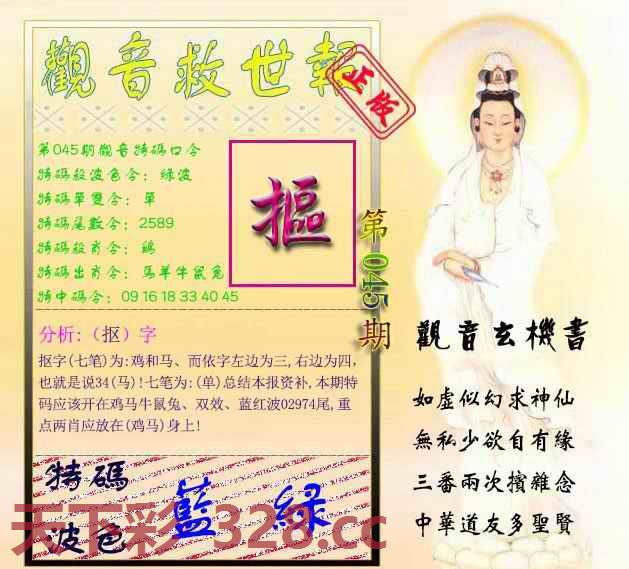 觀音救世報
正版
第045期觀音特碼口令
特碼殺波色令：綠波
特碼單雙令：單
特碼尾數令：2589
特碼殺肖令：鷄
特碼出肖令：馬羊牛鼠兔
特中碼令：09 16 18 33 40 45
摳
第045期
分析:（抠）字
抠字(七笔)为:鸡和马、而依字左边为三,右边为四,
也就是说34(马)!七笔为:(单)总结本报资补,本期特
码应该开在鸡马牛鼠兔、双效、蓝红波02974尾,重
点两肖应放在(鸡马)身上!
觀音玄機書
如虛似幻求神仙
無私少欲自有緣
三番兩次擯雜念
中華道友多聖賢
特碼
波色
藍 綠
天下彩 328.cc